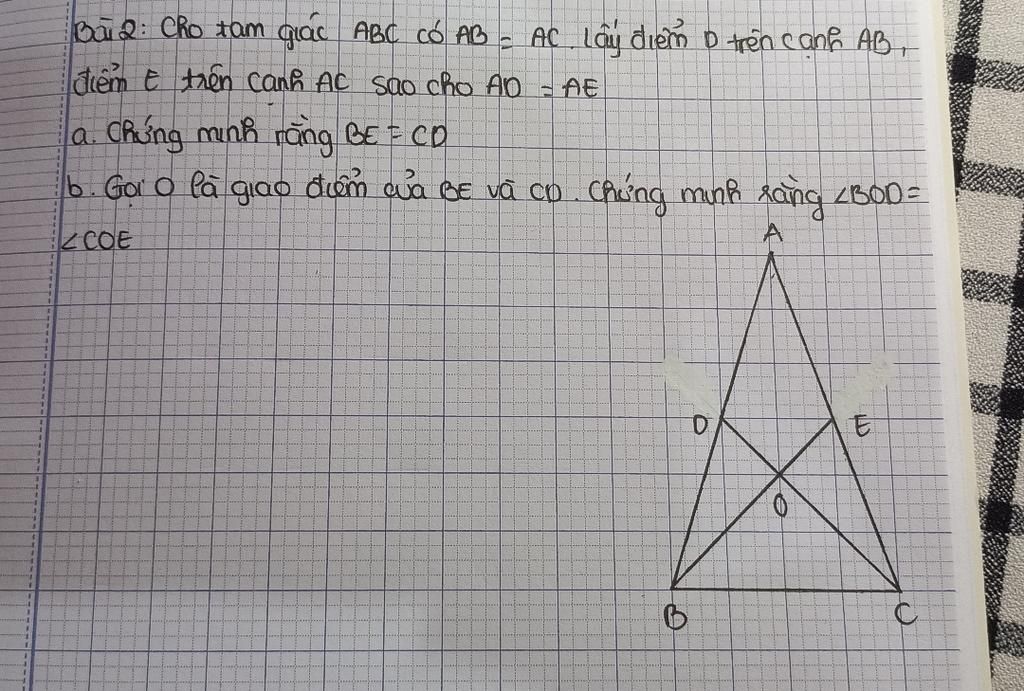 Bài 2: Cho tam giác ABC có AB = AC. Lấy điểm D trên cạnh AB,
điểm E trên cạnh AC sao cho AD = AE
a. Chứng minh rằng BE = CD
b. Gọi O là giao điểm của BE và CD. Chứng minh rằng ∠BOD =
∠COE
A
D
E
O
B
C